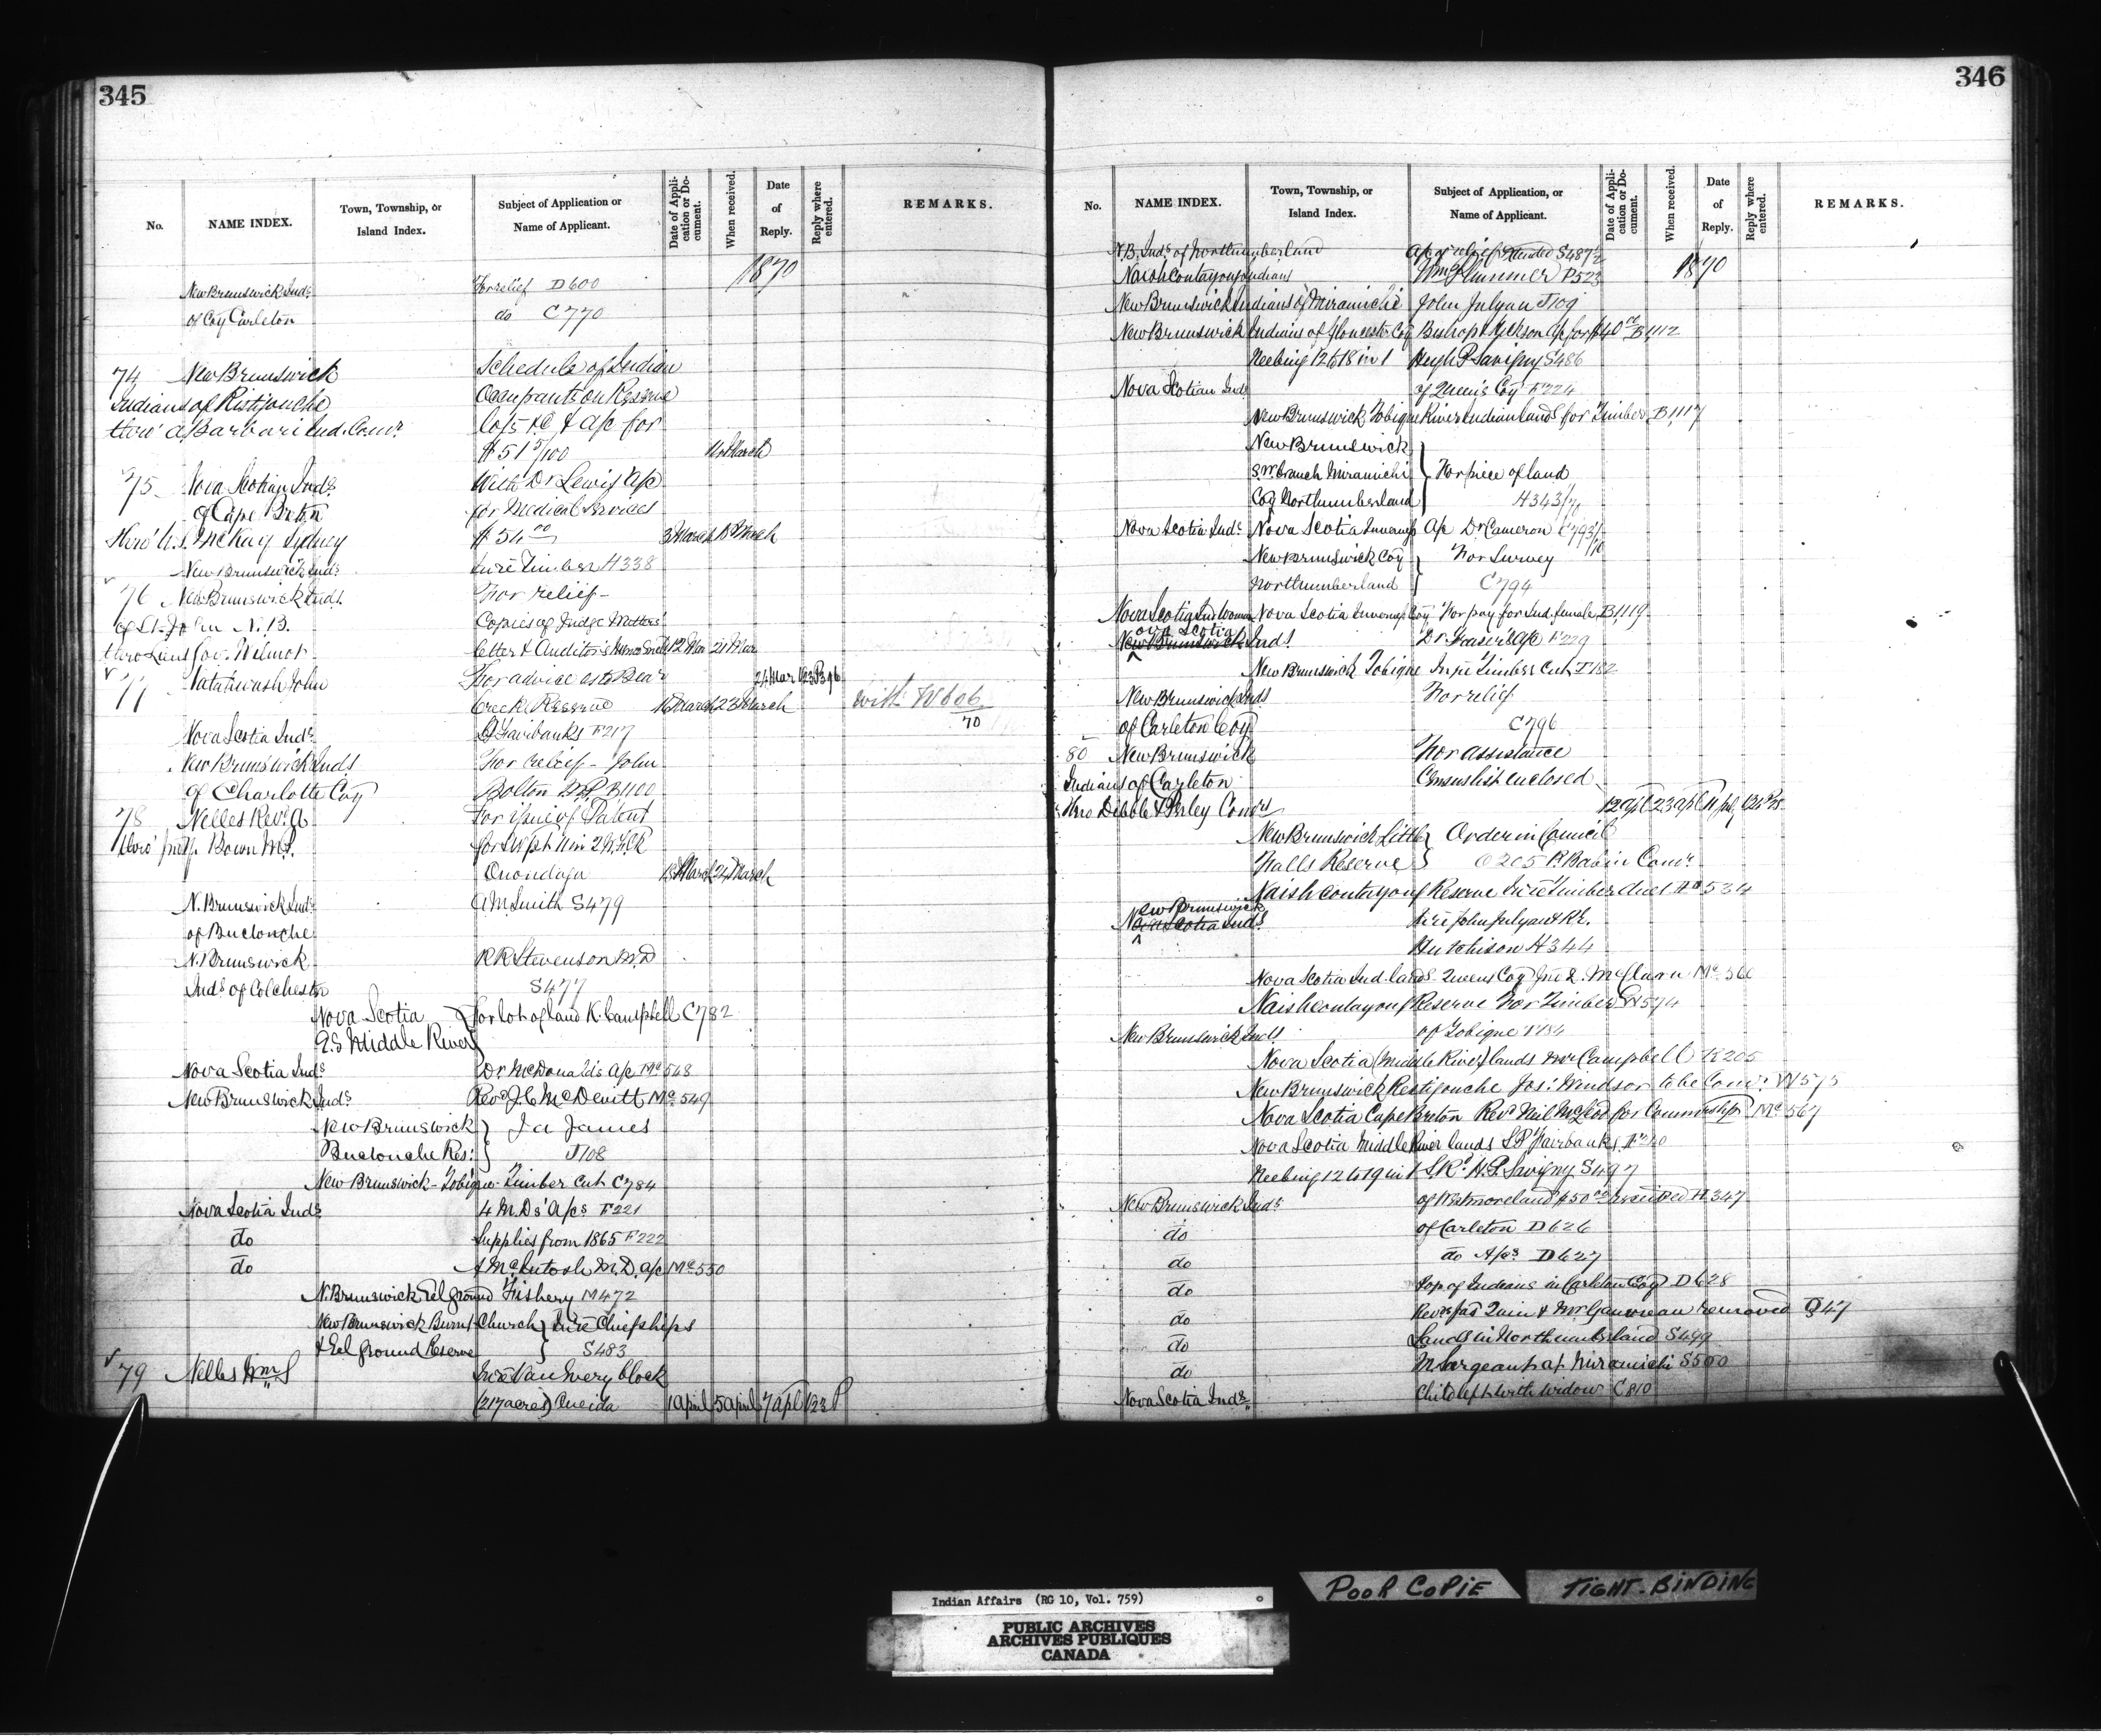 345
No.
NAME INDEX.
Town, Township, or Island Index.
Subject of Application or Name of Applicant.
Date of Application or Document.
When received.
Date of Reply.
Reply where entered.
REMARKS.
1870
New Brunswick Inds. For relief D600
of Coy Carleton do C770
74 New Brunswick Schedule of Indian
Indians of Ristigouche Occupants on Reserve
thro' A. Barbarie Ind. Comr. Co/5 &c & a/c for
$51 5/100 March
75 Nova Scotian Inds. With Dr Lewis a/c
of Cape Breton for Medical Services
thro' McKay Sydney $54 00 3 March 18 March
New Brunswick Inds. Timber H338
76 New Brunswick Inds. For relief -
of St. John N.B. Copies of Judge
thro Lieut Gov. Wilmot letter & Auditors 12 Mar 21 Mar
77 Natahwash John For advice as to Bear 24 Mar
Creek Reserve 18 March 23 March with W606/70
Nova Scotia Inds. Fairbanks F217
New Brunswick Inds For relief - John
of Charlotte Coy Bolton M.P. B1100
78 Nelles Revd. A For issue of Patent
thro' Bown M.P. for
Onondaga 18 March 24 March
N. Brunswick Inds. A M. Smith S479
of Buctouche
N. Brunswick R R Stevenson M.D
Inds. of Colchester S477
Nova Scotia } For lot of land K. Campbell C782
Middle River
Nova Scotia Inds. Dr. McDonald's a/c Mc548
New Brunswick Inds. Revd. J.C. McDevitt Mc549
New Brunswick } Ja James
Buctouche Res: } J108
New Brunswick - Tobique - Timber cut C784
Nova Scotia Inds. 4 M.Ds' a/cs F221
do Supplies from 1865 F222
do A McIntosh M.D. a/c Mc550
N. Brunswick Eel ground Fishery M472
New Brunswick Burnt Church } In re Chiefships
& Eel ground Reserve } S483
79 Nelles Wm S In re Van Every block
(217 acres) Oneida 1 April 5 April 7 Apl 123 P
346
No.
NAME INDEX.
Town, Township, or Island Index.
Subject of Application, or Name of Applicant.
Date of Application or Document.
When received.
Date of Reply.
Reply where entered.
REMARKS.
1870
N.B. Inds. of Northumberland a/c of relief S487½
Naishcontayong Indians Wm Plummer P523
New Brunswick Indians of Miramichi John Julyan J109
New Brunswick Indians of Gloucester Coy Bishop & Jackson a/c for $40 00 B1112
Neebing 12 to 18 in 1 Hugh P Savigny S486
Nova Scotian Inds of Queen's Coy F224
New Brunswick Tobique River Indian land for Timber B1117
New Brunswick }
S.W. branch Miramichi } For piece of land
Coy Northumberland } H343/70
Nova Scotia Inds. Nova Scotia Inverness a/c Dr Cameron C793/70
New Brunswick Coy } For Survey
Northumberland } C794
Nova Scotia Ind Woman Nova Scotia Inverness Coy For pay for Ind. female B1119
ova Scotia
New Brunswick Inds. Dr. Fraser's a/c F229
New Brunswick Tobique In re Timber Cut J182
New Brunswick Inds For relief
of Carleton Coy C796
80 New Brunswick For assistance
Indians of Carleton Census list enclosed
thro Dibble & Perley Comrs 12 Apl 23 Apl
New Brunswick Little } Order in Council
Falls Reserve } O205 P. Babin Comr.
Naishcontayong Reserve In re Timber dues 534
ew Brunswick
Nova Scotia Inds. In re John Julyan & R.
Hutchison H344
Nova Scotia Ind. lands Queens Coy Jno R. McClearn Mc560
Naishcontayong Reserve For Timber W574
New Brunswick Inds. of Tobique J184
Nova Scotia (Middle River) lands Mr Campbell K205
New Brunswick Restigouche Jos: Windsor to be Comr. W575
Nova Scotia Cape Breton Revd Neil McLeod for Commship Mc567
Nova Scotia Middle River lands S.P. Fairbanks F240
Neebing 12 to 19 in 1 S.R. H.P. Savigny S497
New Brunswick Inds. of Westmoreland $50 00 received H347
do of Carleton D626
do do A/cs D627
do Pop. of Indians in Carleton Coy D628
do Revd Jas Quin & Mr Gauvreau removed Q47
do Lands in Northumberland S499
do M Sargeant a/c Miramichi S500
Nova Scotia Inds. Child left with widow C810
Indian Affairs (RG 10, Vol. 759)
PUBLIC ARCHIVES
ARCHIVES PUBLIQUES
CANADA
POOR COPIE
TIGHT-BINDING